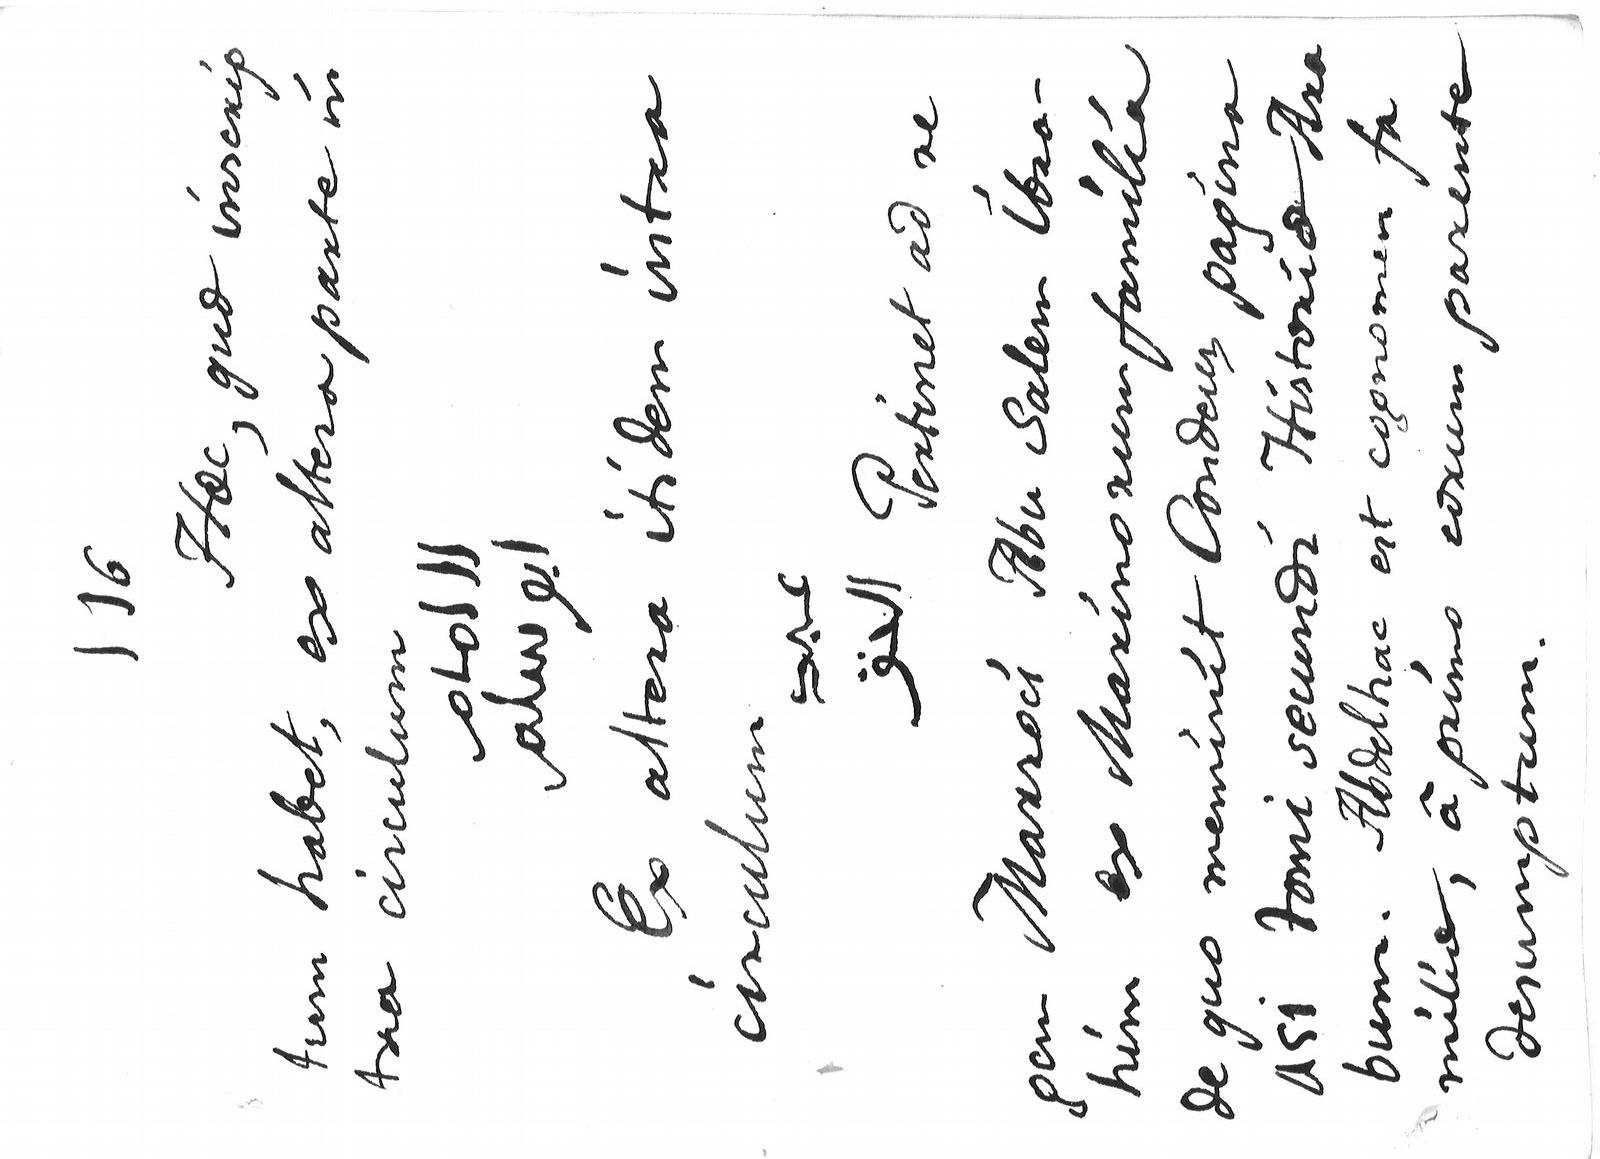 116
Hæc, quæ inscrip
tum habet, ex altera parte in
tra circulum
الامام
ابو سالم
Ex altera itidem intra
circulum
عبد
الحق Pertinet ad re
gem Marroci Abu Salem Ibra-
him ex Marinorum familia
de quo meminit Condeus pagina
tomi secundi Historiæ Ara
bum. Abdelhac est cognomen fa
miliæ, à primo eorum parente
desumptum.